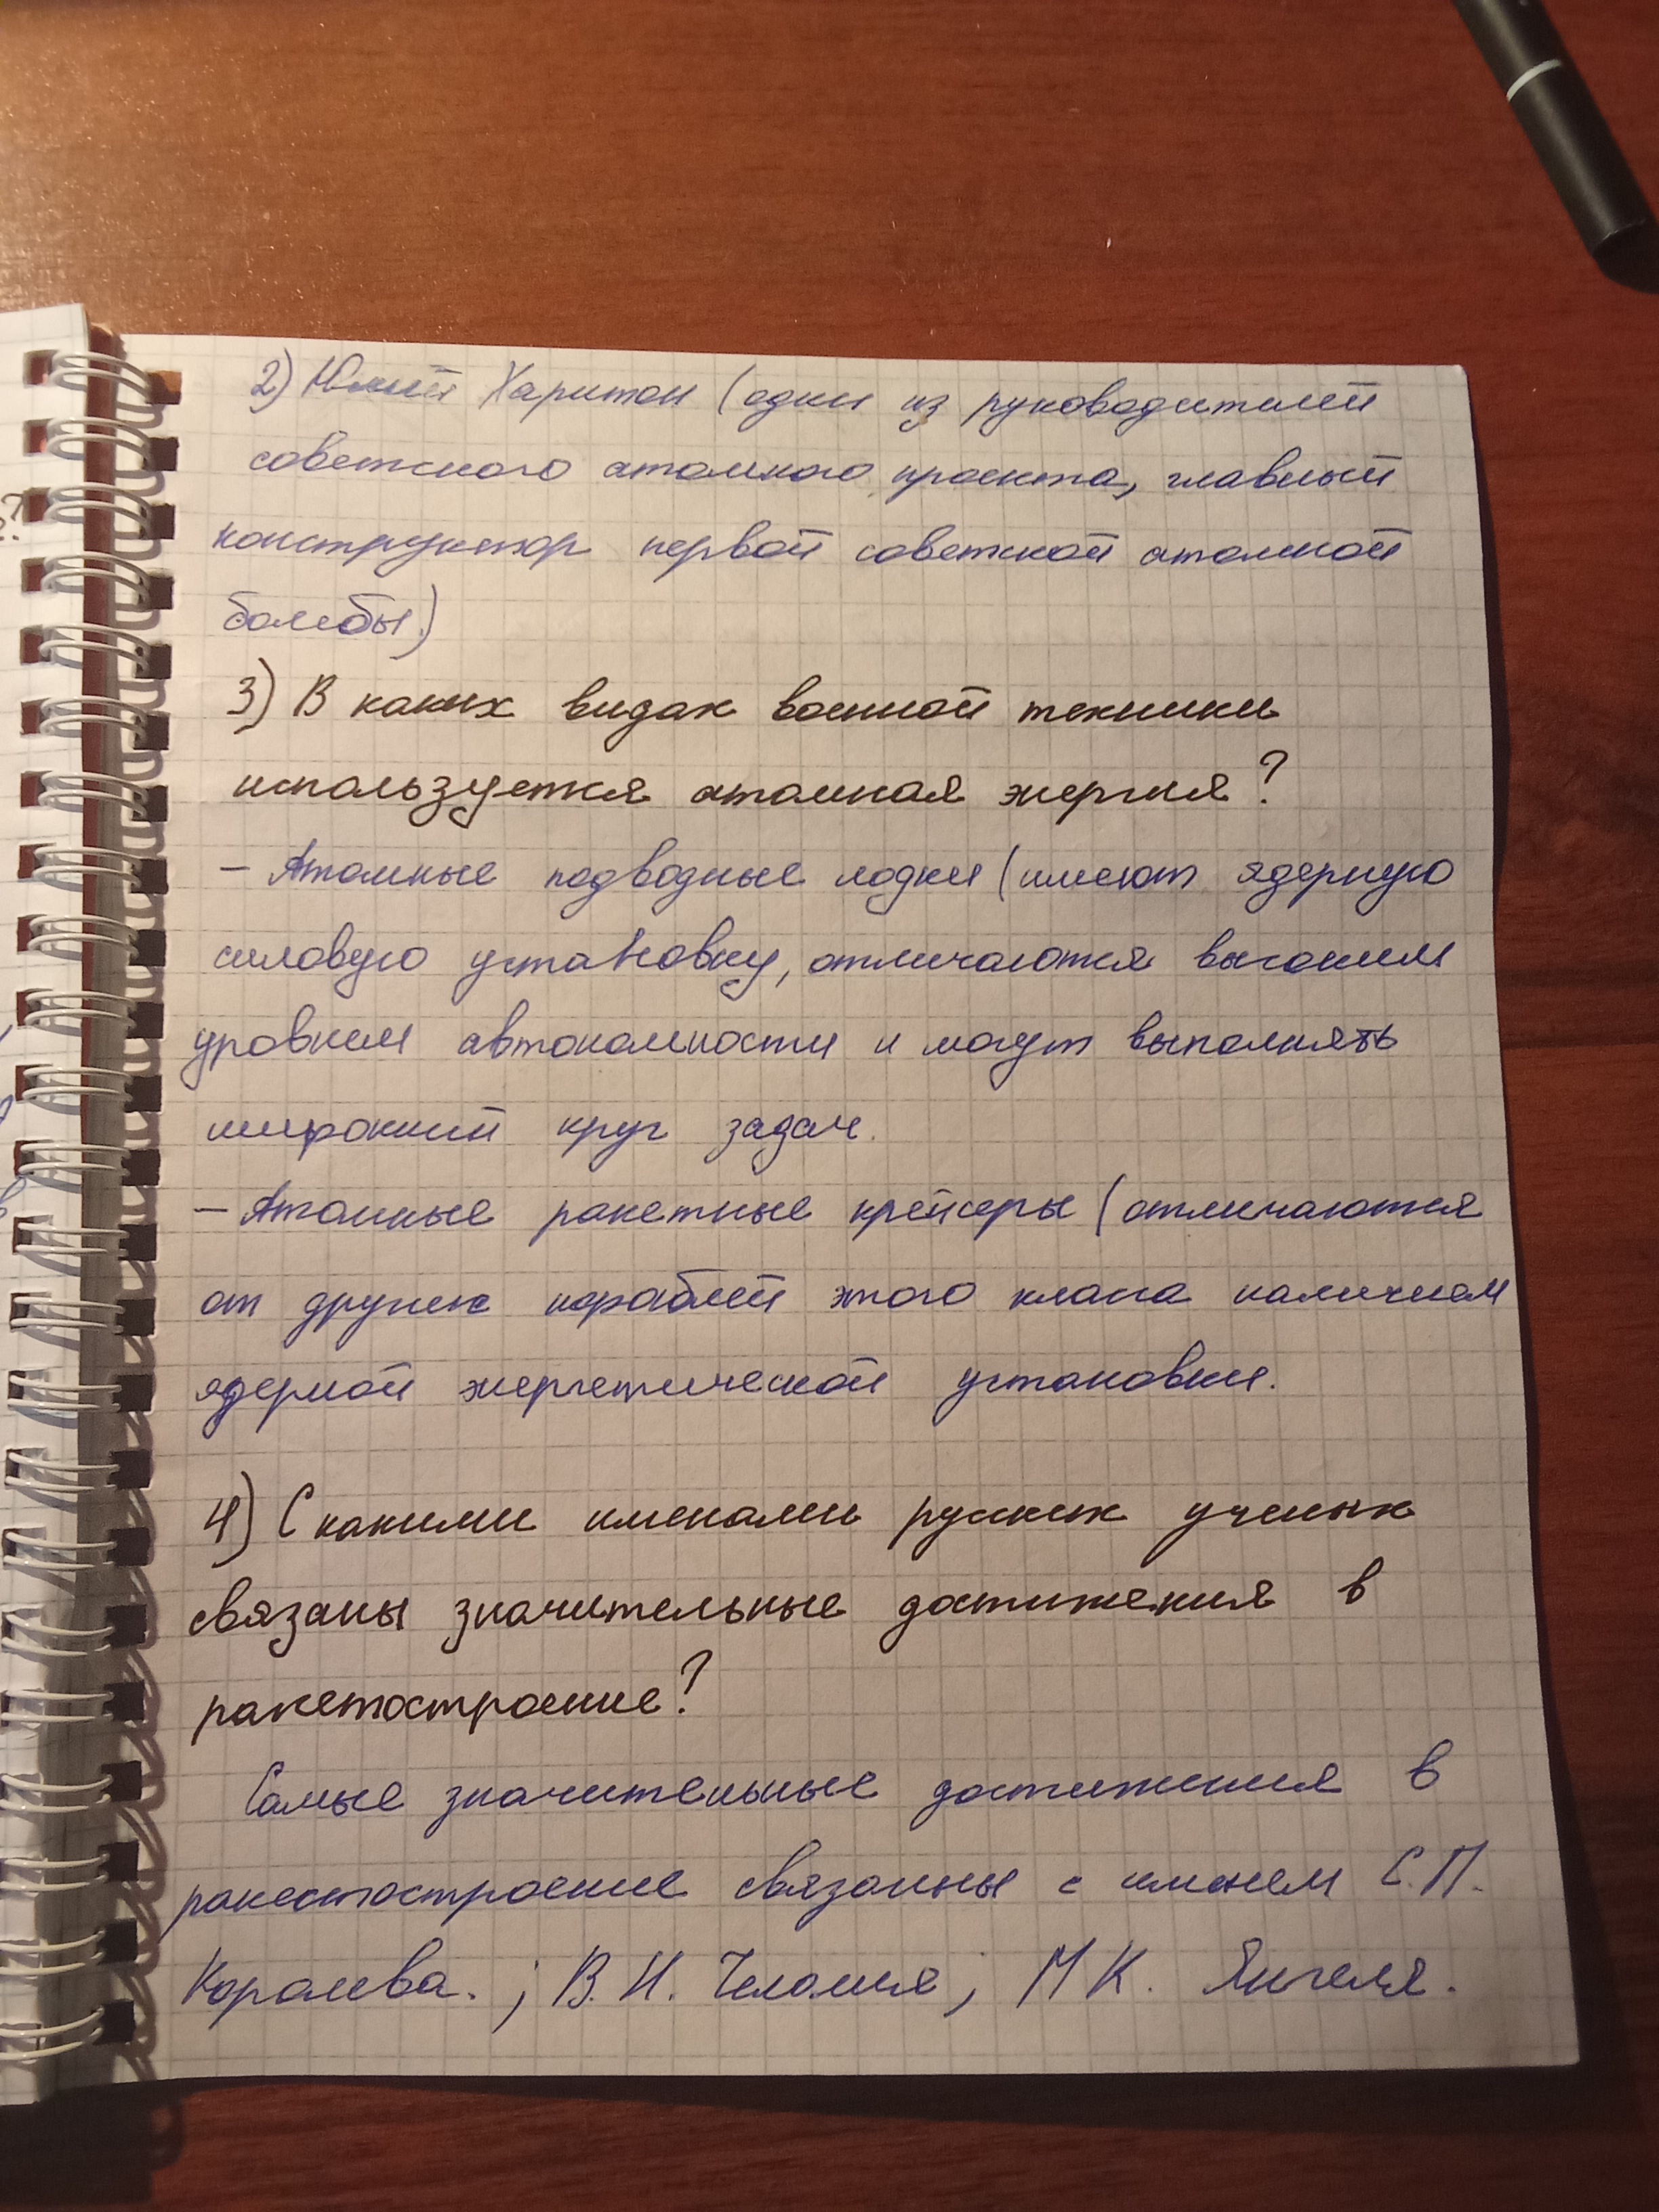 2) Юлий Харитон (один из руководителей
советского атомного проекта, главный
конструктор первой советской атомной
бомбы.)
3) В каких видах военной техники
используется атомная энергия?
- Атомные подводные лодки (имеют ядерную
силовую установку, отличаются высоким
уровнем автономности и могут выполнять
широкий круг задач.
- Атомные ракетные крейсеры (отличаются
от других кораблей этого класса наличием
ядерной энергетической установки.
4) С какими именами русских ученых
связаны значительные достижения в
ракетостроение?
Самые значительные достижения в
ракетостроение связанны с именем С.П.
Королева. ; В.Н. Челомея; М К. Янгеля.